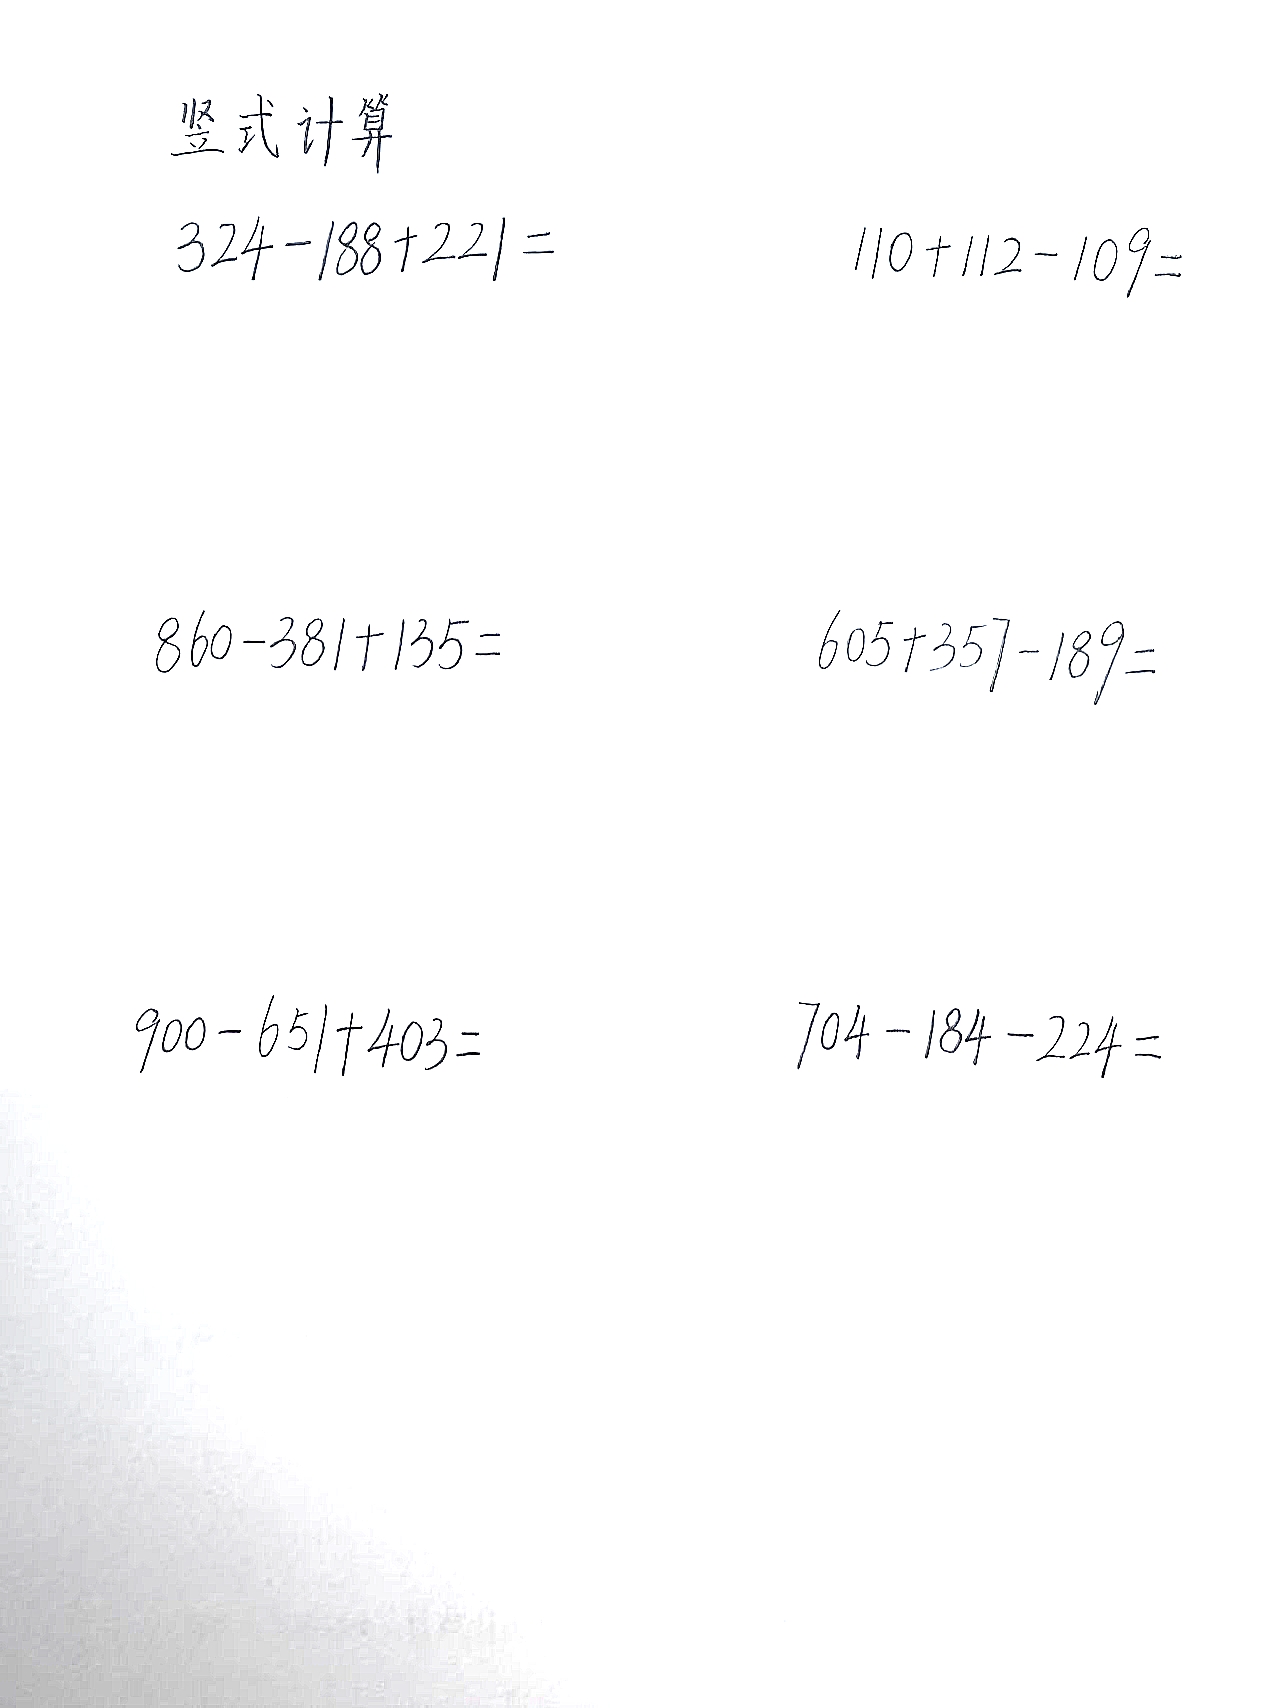 竖式计算
324-188+221=
110+112-109=
860-381+135=
605+357-189=
900-651+403=
704-184-224=